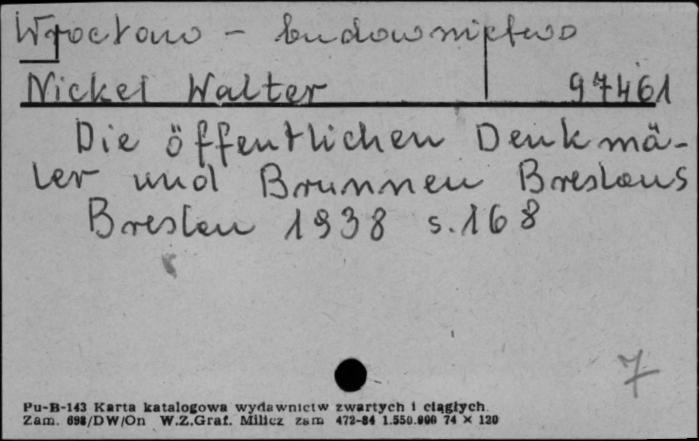 Wrocław - budownictwo
Nickel Walter 97461
Die öffentlichen Denkmä-
ler und Brunnen Breslaus
Breslau 1938 s.168
7
Pu-B-143 Karta katalogowa wydawnictw zwartych i ciągłych.
Zam. 698/DW/On W.Z.Graf. Milicz zam 472-84 1.550.000 74 × 120